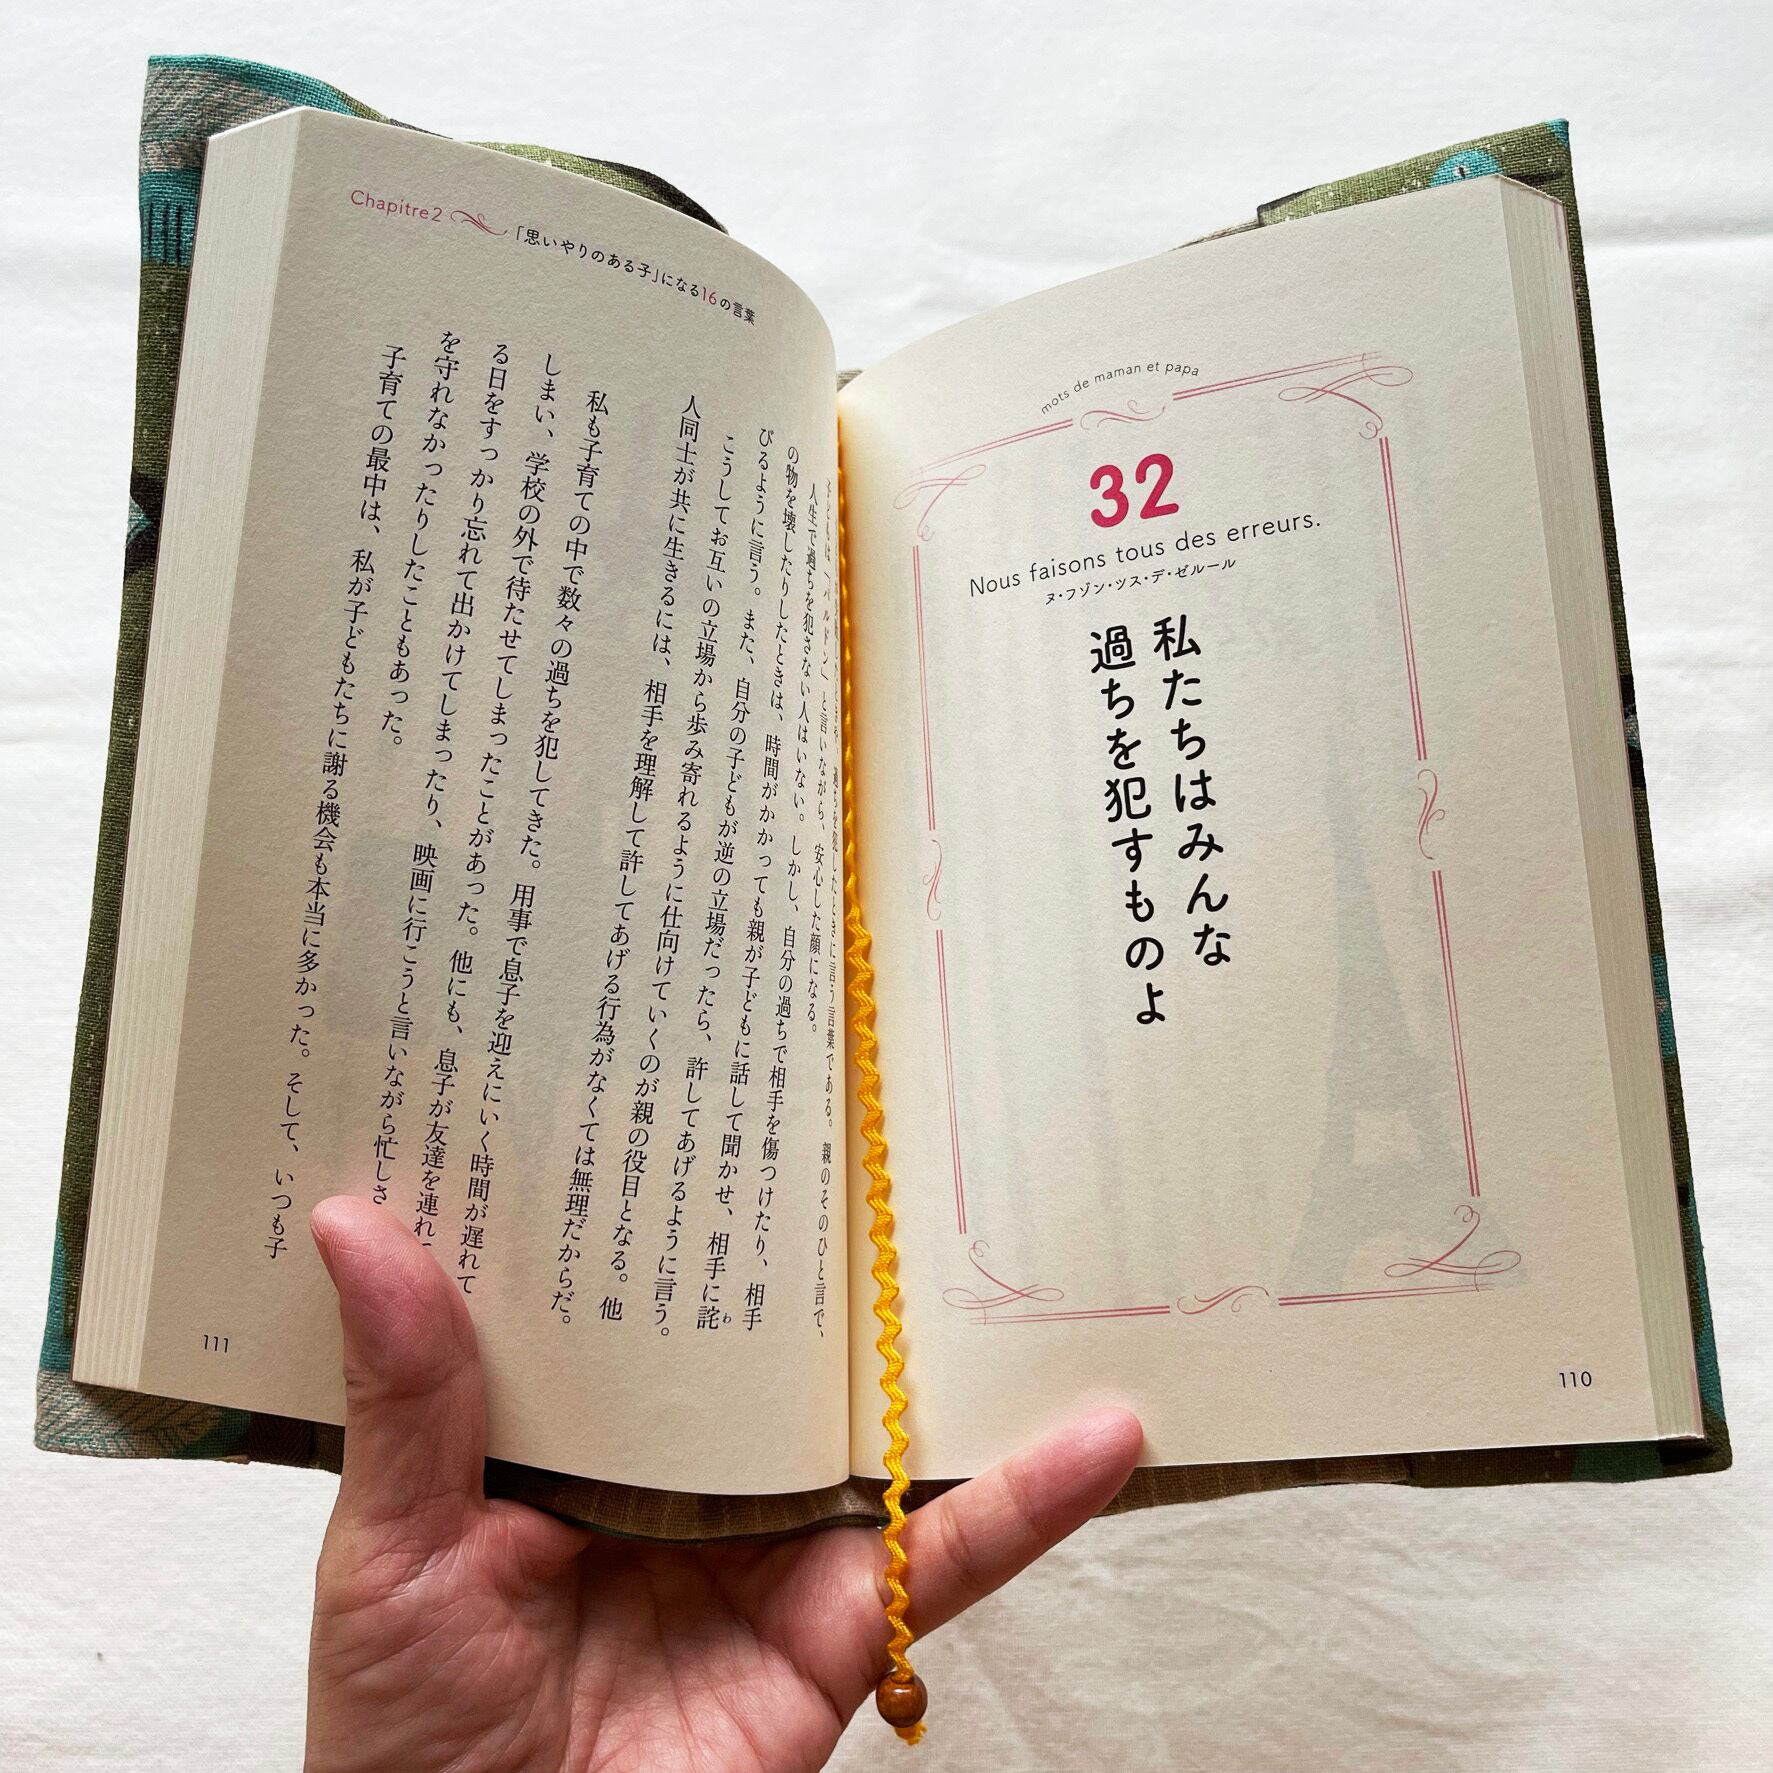 mots de maman et papa
32
Nous faisons tous des erreurs.
ヌ・フゾン・ツス・デ・ゼルール
私たちはみんな
過ちを犯すものよ
110
Chapitre2
「思いやりのある子」になる16の言葉
過ちを犯したときに言う言葉である。親のそのひと言で、
子どもは「パルドン」と言いながら、安心した顔になる。
人生で過ちを犯さない人はいない。しかし、自分の過ちで相手を傷つけたり、相手
の物を壊したりしたときは、時間がかかっても親が子どもに話して聞かせ、相手に詫
わ
びるように言う。また、自分の子どもが逆の立場だったら、許してあげるように言う。
こうしてお互いの立場から歩み寄れるように仕向けていくのが親の役目となる。他
人同士が共に生きるには、相手を理解して許してあげる行為がなくては無理だからだ。
私も子育ての中で数々の過ちを犯してきた。用事で息子を迎えにいく時間が遅れて
しまい、学校の外で待たせてしまったことがあった。他にも、息子が友達を連れ
る日をすっかり忘れて出かけてしまったり、映画に行こうと言いながら忙しさ
を守れなかったりしたこともあった。
子育ての最中は、私が子どもたちに謝る機会も本当に多かった。そして、いつも子
111